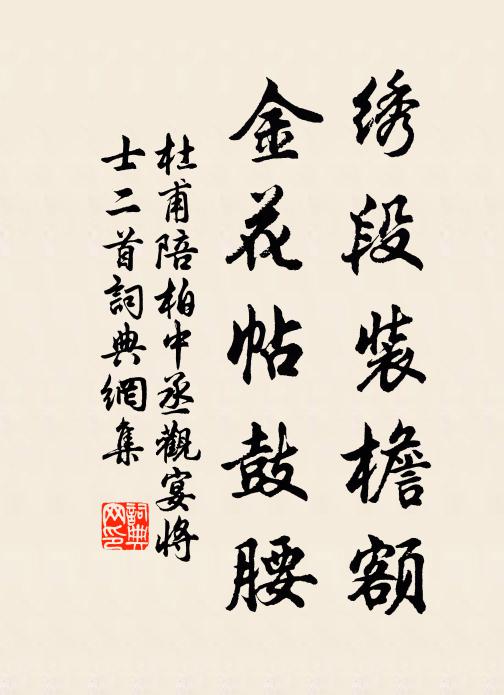 绣段装檐额
金花帖鼓腰
杜甫陪柏中丞觀宴将
士二首詞典網集
詞典
网印